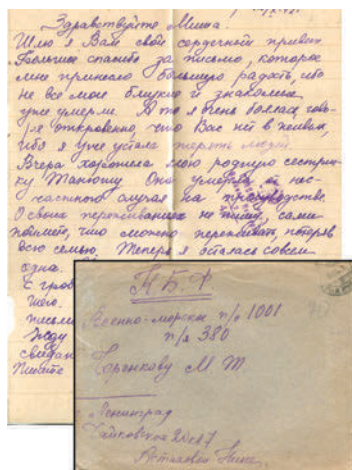 Здравствуйте Миша.
Шлю я Вам свой сердечный привет
Большое спасибо за письмо, которое
мне принесло большую радость, ибо
не все мои близкие и знакомые
уже умерли. А то я очень боялась, гово-
ря откровенно, что Вас нет в живых,
ибо я уже устала терять людей.
Вчера хоронила мою родную сестрич-
ку Танюшу. Она умерла от нес-
частного случая на производстве.
О своих переживаниях не пишу, сами
поймете, что можно переживать, потеряв
всю семью. Теперь я осталась совсем
одна.
Жду
Пишите
К.Б.Ф.
Военно-морская п/о 1001
п/я 380
Горенкову М Т.
Ленинград
Чайковского